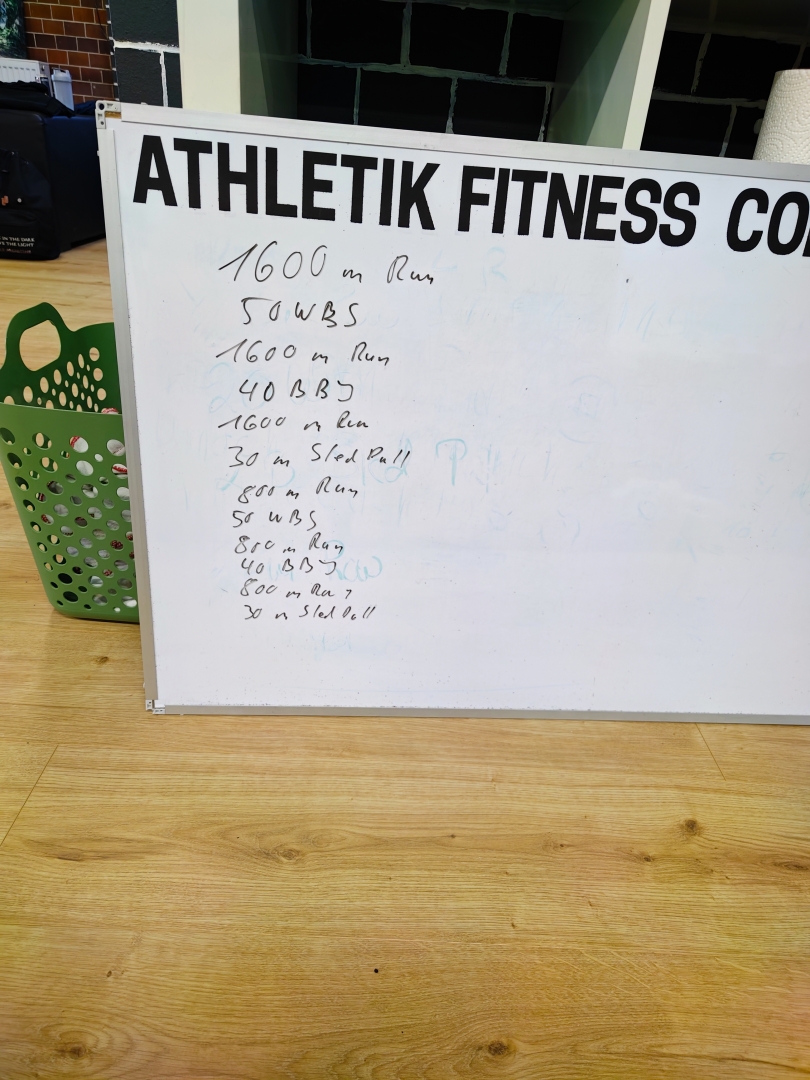 ATHLETIK FITNESS CO
1600 m Run
50 WBS
1600 m Run
40 BBJ
1600 m Run
30 m Sled Pull
800 m Run
50 WBS
800 m Run
40 BBJ
800 m Run
30 m Sled Pull